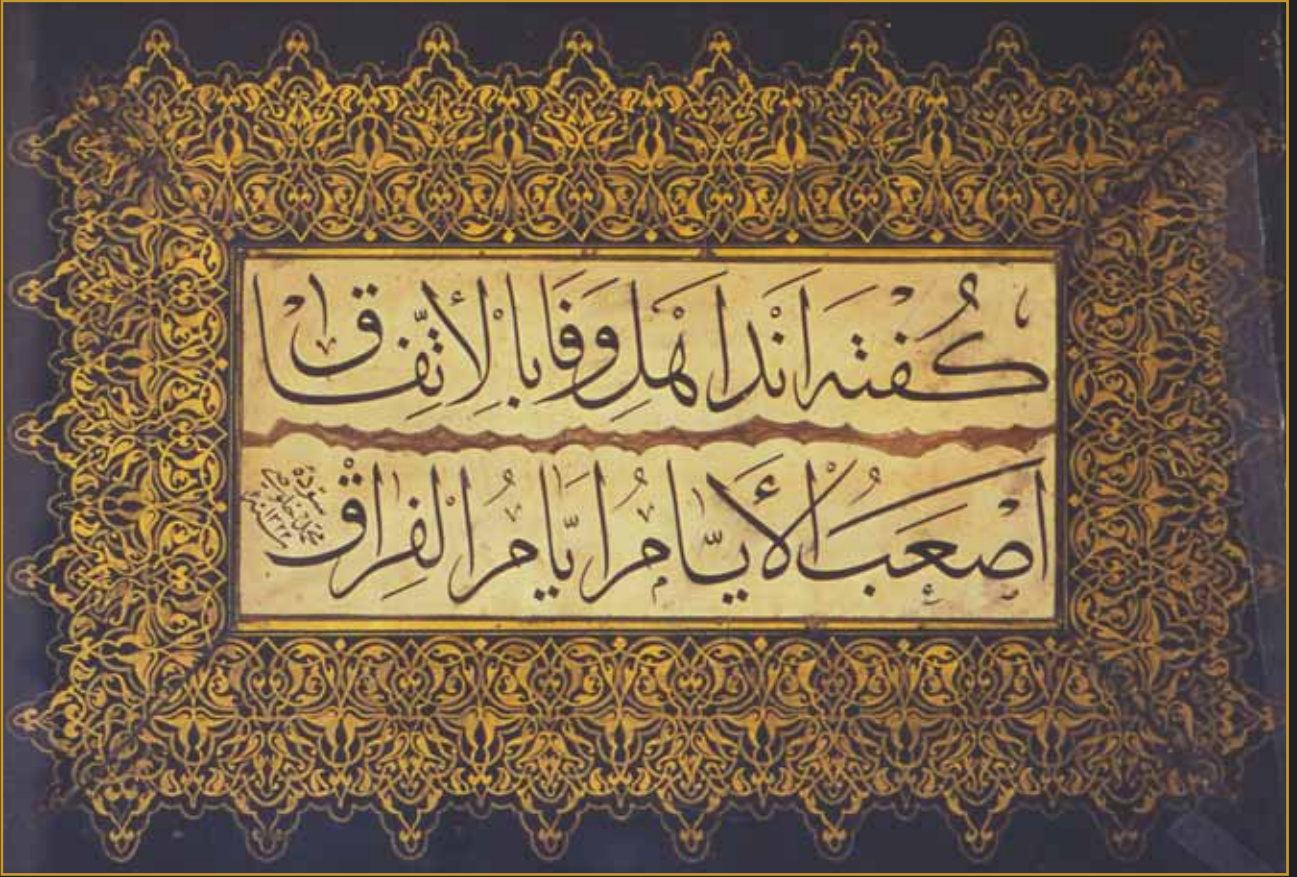 كُفته اَنْدَ اهْلِ وَفَا بِالْاتِّفَاق
اَصْعَبُ الْأَيَّامِ اَيَّامُ الْفِرَاقْ
سوّده
١٣٢٢